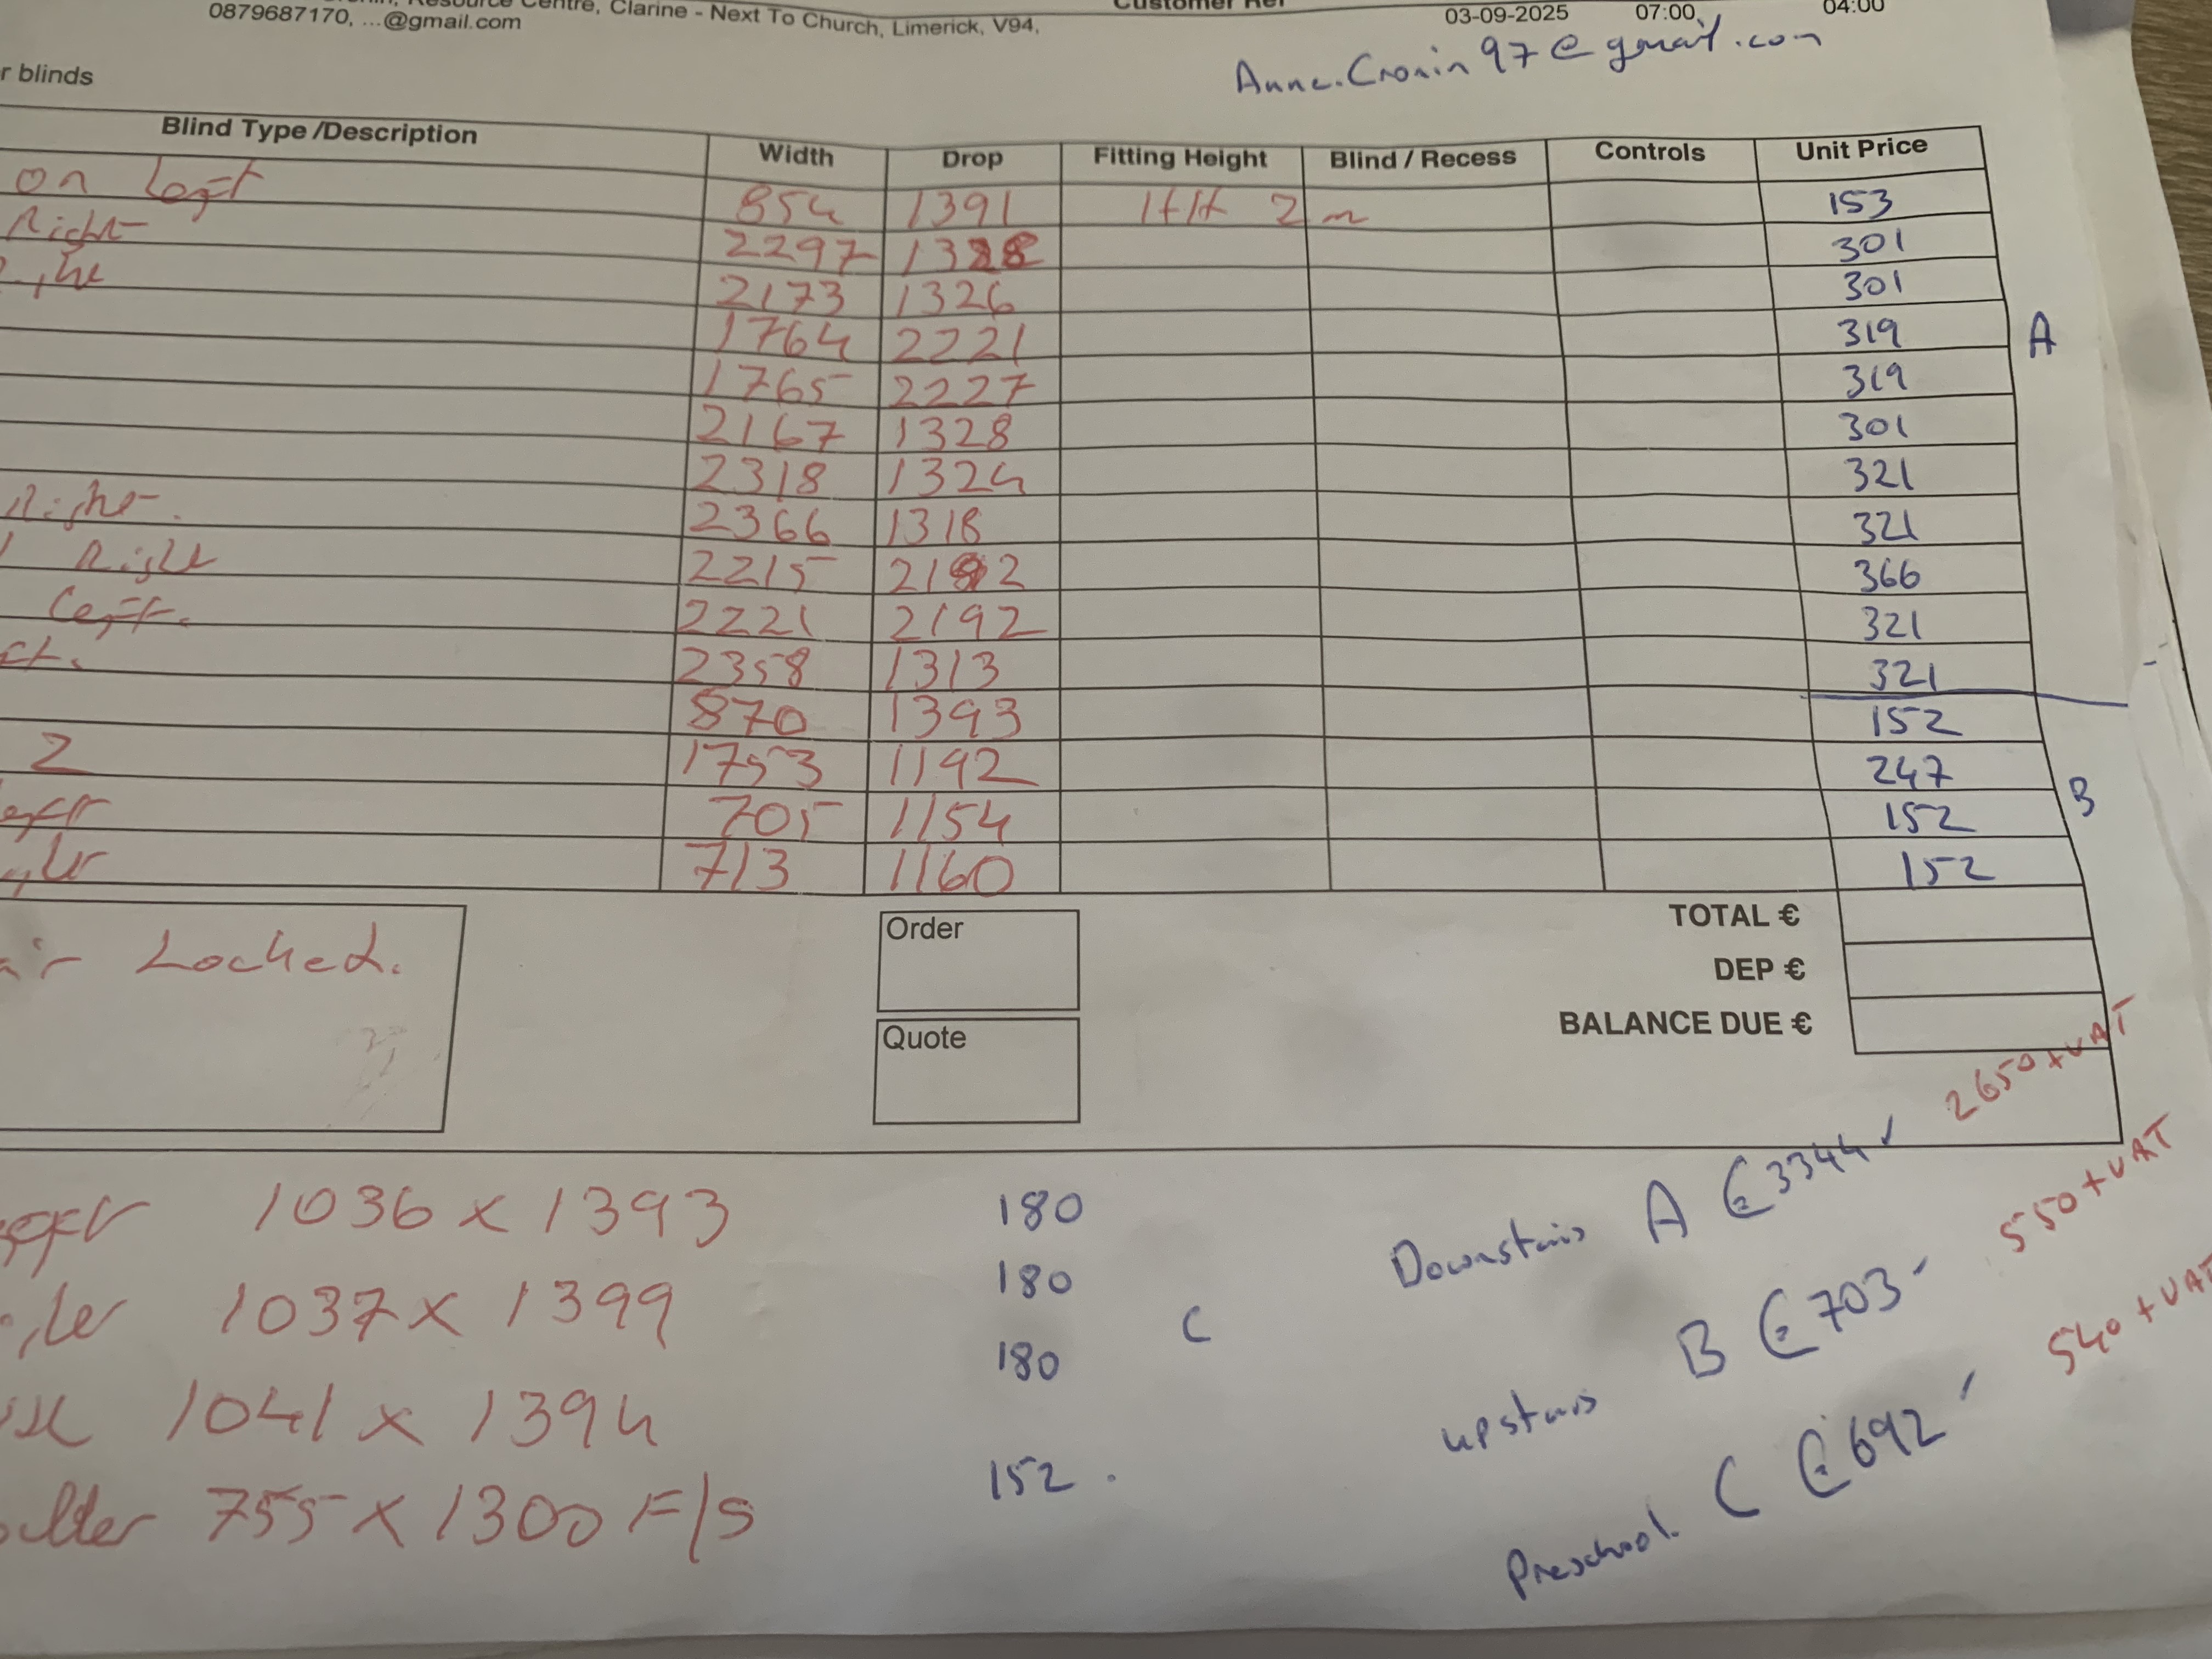 Resource Centre, Clarine - Next To Church, Limerick, V94,
0879687170, ...@gmail.com
Customer Ref
03-09-2025 07:00 04:00
Anne.Cronin97@gmail.com
r blinds
Blind Type /Description Width Drop Fitting Height Blind / Recess Controls Unit Price
on Left 854 1391 2m 153
Right 2297 1328 301
2173 1326 301
1764 2221 319
A
1765 2227 319
2167 1328 301
2318 1324 321
Right. 2366 1318 321
Right 2215 2192 366
Left. 2221 2192 321
2358 1313 321
870 1393 152
2 1753 1192 247
B
705 1154 152
713 1160 152
Locked.
Order
Quote
TOTAL €
DEP €
BALANCE DUE €
2650+VAT
Downstairs A €3344 ✓
550+VAT
upstairs B €703
540+VAT
Preschool. C €692
1036 x 1393 180
1037 x 1399 180
C
1041 x 1394 180
755 x 1300 F/S 152.